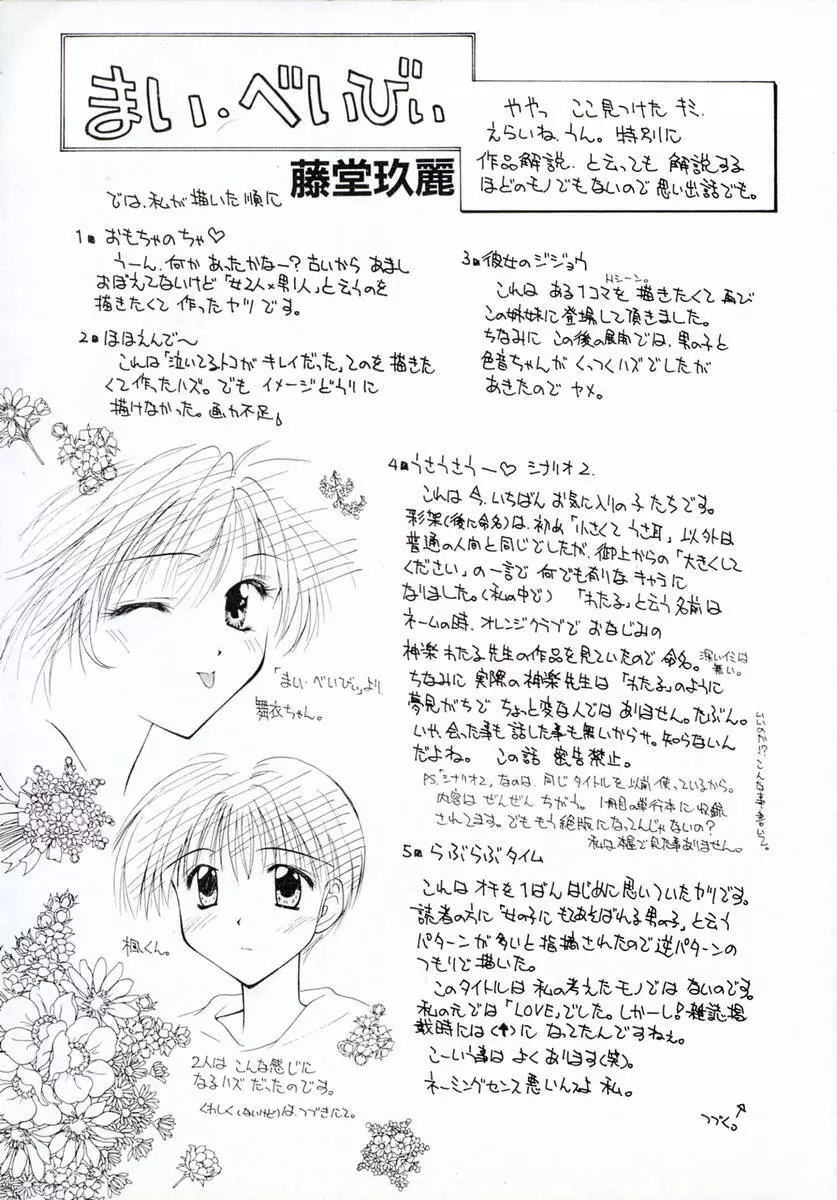 まい・べいびぃ
藤堂玖麗
ややっ ここ見つけた キミ、
えらいね、うん。特別に
作品解説、と云っても 解説する
ほどのモノでもないので 思い出話でも。
では、私が描いた順に
1■ おもちゃのちゃ♡
うーん、何か あったかなー？古いから あまし
おぼえてないけど「女2人×男1人」と云うのを
描きたくて 作ったヤツ です。
2■ ほほえんで～
これは「泣いてるトコが キレイだった」てのを 描きた
くて作ったハズ。でも イメージどうりに
描けなかった。画力不足
3■ 彼女のジジョウ
Hシーン。
これは ある1コマを 描きたくて 再び
この姉妹に登場して頂きました。
ちなみに この後の展開では、男の子と
色音ちゃんが くっつくハズでしたが
あきたので ヤメ。
4■ うさうさうー♡ シナリオ2.
これは 今、いちばん お気に入りの子たちです。
彩架(後に命名)は、初め「小さくて うさ耳」以外は
普通の人間と同じでしたが、御上からの「大きくして
ください」の一言で 何でも有りな キャラに
なりました。(私の中で) 「わたる」と云う名前は
ネームの時、オレンジクラブで おなじみの
神楽 わたる先生の作品を見ていたので 命名。
深いイミは
無い。
ちなみに 実際の神楽先生は 「わたる」のように
夢見がちで ちょっと変な人では ありません。たぶん。
いや、会った事も 話した事も 無いからサ。知らないん
だよね。 この話 密告禁止。
いいのか!?こんな事・書いて。
PS.「シナリオ2」なのは、同じタイトルを以前 使っているから。
内容は ぜんぜん ちがう。1冊目の単行本に 収録
されてます。でも もう絶版になってんじゃないの？
私は本屋で見た事ありません。
5■ らぶらぶタイム
これは オチを 1ばん はじめに思いついたヤツです。
読者の方に「女の子に もてあそばれる 男の子」と云う
パターンが 多いと 指摘されたので 逆パターンの
つもりで 描いた。
このタイトルは 私の考えた モノでは ないのです。
私の元では「LOVE」でした。しかーし！雑誌掲
載時には(↑)に なってたんですねぇ。
こーいう事は よく あります(笑)。
ネーミングセンス 悪いんでよ 私。
つづく。
「まい・べいびぃ」より、
舞衣ちゃん。
楓くん。
2人は こんな感じに
なるハズ だったのです。
くわしく(ないけど)は、つづきにて。